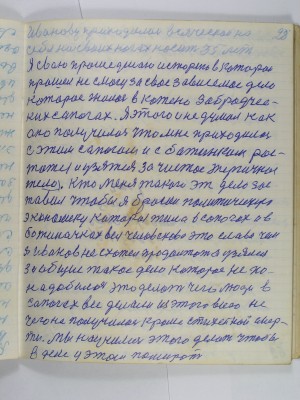 35
Иванову приходилось
себя на своих ногах носит 35 лет
Я свою прошедшою историю в которое
прошли не смогу за свое зависемое дело
которое жило в котено забродчес-
ких сапогах. Я этого и не думал как
оно получилося что мне приходилось
с этим сапогам и с батинкам рас-
татся и взятся за чистое энергичное
тело. Кто меня такого эт дело зас
тавил чтобы я бросил политическую
экономику которая жила в сапогах и в
ботиночках вся человеково это слава чем
я Иванов не схотел продолжать а взялся
за общие такое дело которое не по-
надобилося это делать чего люди в
сапогах все делали из этого всего не
чего не получилося кроме стихейной смер-
ти. Мы научились этого делать чтобы
в деле у этом